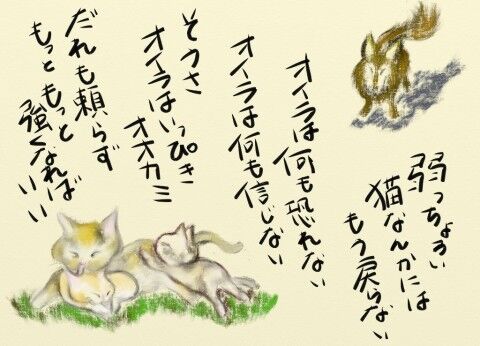 弱っちょろい
猫なんかには
もう戻らない
オイラは何も恐れない
オイラは何も信じない
そうさ
オイラはいっぴき
オオカミ
だれも頼らず
もっと もっと
強くなれば
いい